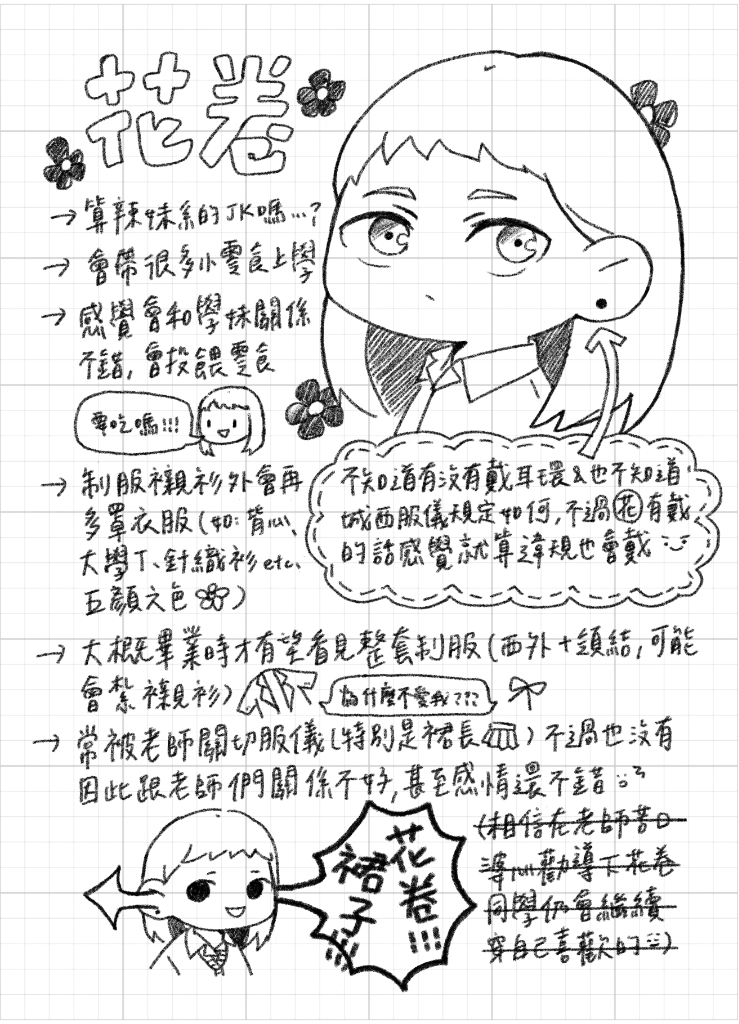 花卷
→ 算辣妹系的JK嗎…?
→ 會帶很多小零食上學
→ 感覺會和學妹關係
不錯,會投餵零食
要吃嗎!!!
→ 制服襯衫外會再
多罩衣服(如:背心、
大學T、針織衫etc.
五顏六色)
不知道有沒有戴耳環&也不知道
城西服儀規定如何,不過花有戴
的話感覺就算違規也會戴
→ 大概畢業時才有望看見整套制服(西外+領結,可能
會紮襯衫)
為什麼不愛我???
→ 常被老師關切服儀(特別是裙長)不過也沒有
因此跟老師們關係不好,甚至感情還不錯
(相信在老師苦口
婆心勸導下花卷
同學仍會繼續
穿自己喜歡的)
花卷!!!
裙子!!!